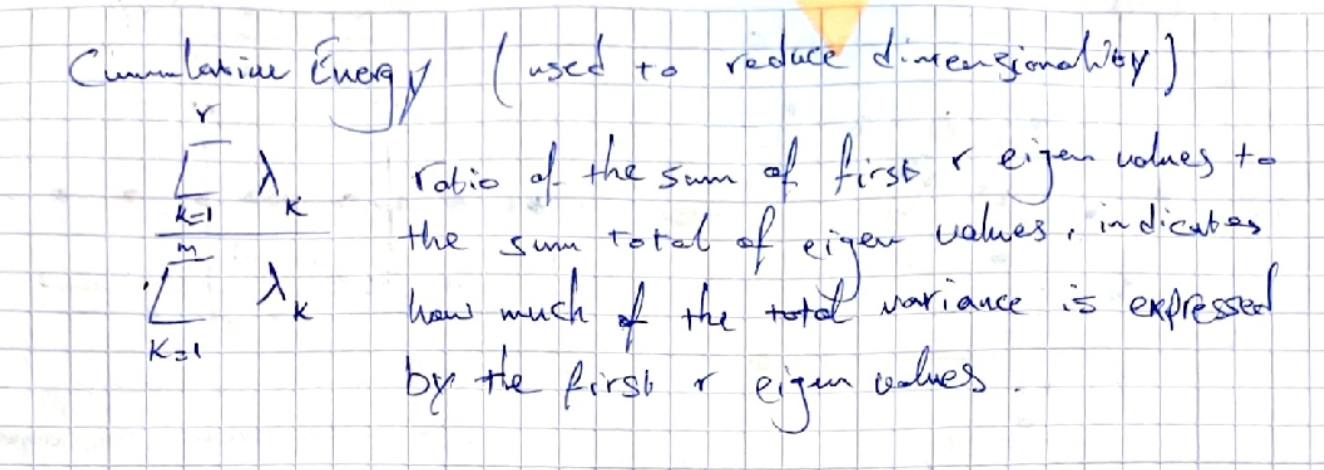 Cummulative Energy (used to reduce dimensionality)
r
∑ λ_k
k=1
m
∑ λ_k
K=1
ratio of the sum of first r eigen values to
the sum total of eigen values, indicates
how much of the total variance is expressed
by the first r eigen values.